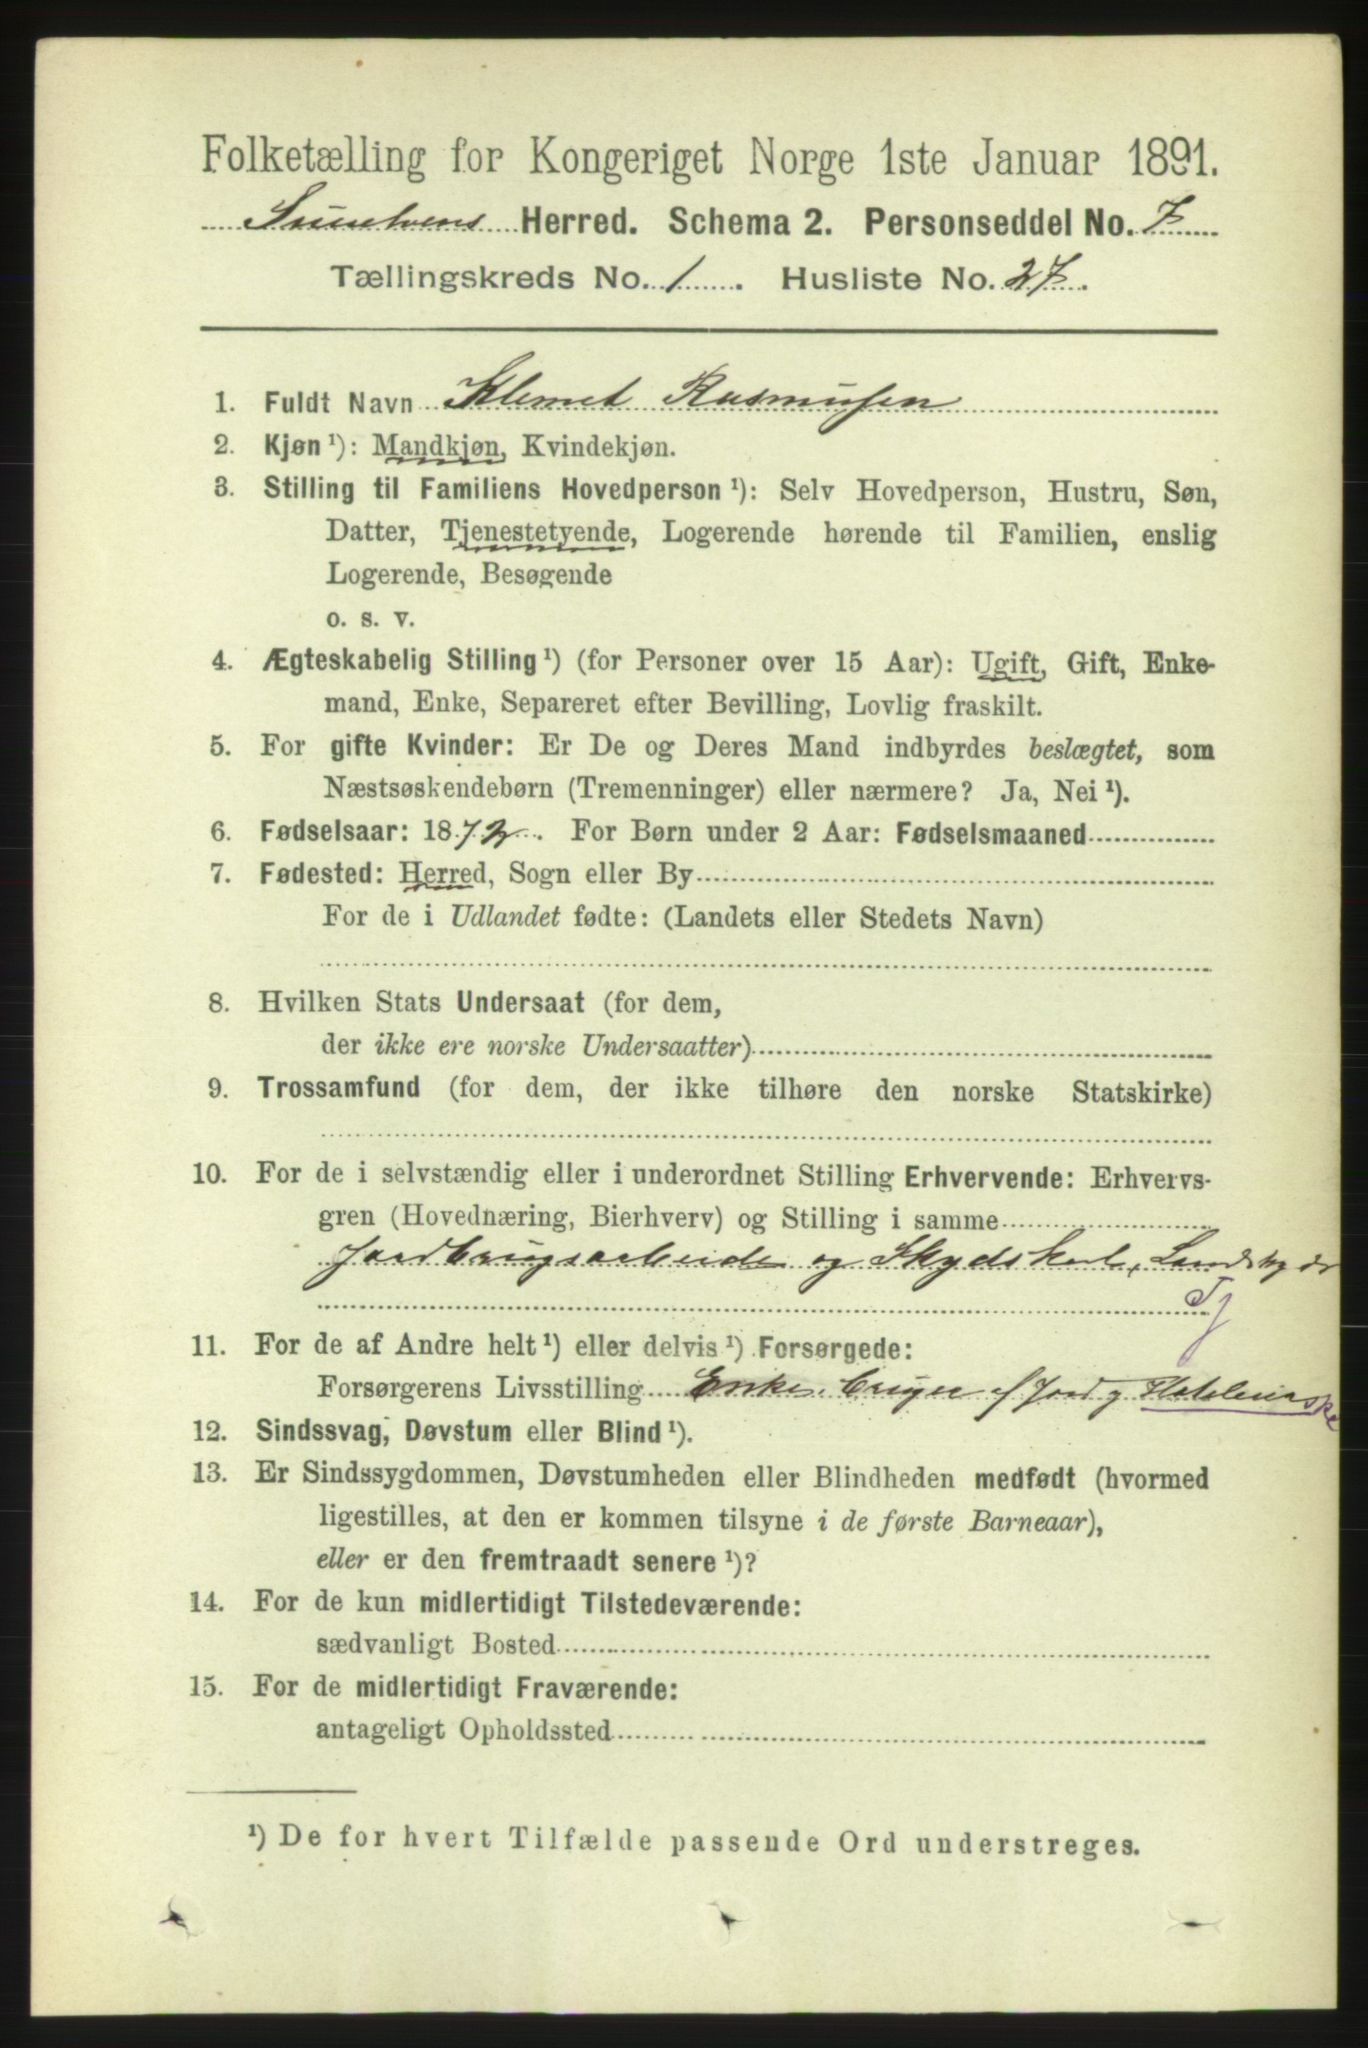 Folketælling for Kongeriget Norge 1ste Januar 1891.
Sunelvens Herred. Schema 2. Personseddel No. 7
Tællingskreds No. 1. Husliste No. 27.
1. Fuldt Navn Klemet Rasmusen
2. Kjøn ¹): Mandkjøn, Kvindekjøn.
3. Stilling til Familiens Hovedperson ¹): Selv Hovedperson, Hustru, Søn,
Datter, Tjenestetyende, Logerende hørende til Familien, enslig
Logerende, Besøgende
o. s. v.
4. Ægteskabelig Stilling ¹) (for Personer over 15 Aar): Ugift, Gift, Enke-
mand, Enke, Separeret efter Bevilling, Lovlig fraskilt.
5. For gifte Kvinder: Er De og Deres Mand indbyrdes beslægtet, som
Næstsøskendebørn (Tremenninger) eller nærmere? Ja, Nei ¹).
6. Fødselsaar: 1872. For Børn under 2 Aar: Fødselsmaaned
7. Fødested: Herred, Sogn eller By
For de i Udlandet fødte: (Landets eller Stedets Navn)
8. Hvilken Stats Undersaat (for dem,
der ikke ere norske Undersaatter)
9. Trossamfund (for dem, der ikke tilhøre den norske Statskirke)
10. For de i selvstændig eller i underordnet Stilling Erhvervende: Erhvervs-
gren (Hovednæring, Bierhverv) og Stilling i samme
Jordbrugsarbeide og Skydskarl,
Tj
11. For de af Andre helt ¹) eller delvis ¹) Forsørgede:
Forsørgerens Livsstilling Enke, bruger af Jord og
12. Sindssvag, Døvstum eller Blind ¹).
13. Er Sindssygdommen, Døvstumheden eller Blindheden medfødt (hvormed
ligestilles, at den er kommen tilsyne i de første Barneaar),
eller er den fremtraadt senere ¹)?
14. For de kun midlertidigt Tilstedeværende:
sædvanligt Bosted
15. For de midlertidigt Fraværende:
antageligt Opholdssted
¹) De for hvert Tilfælde passende Ord understreges.